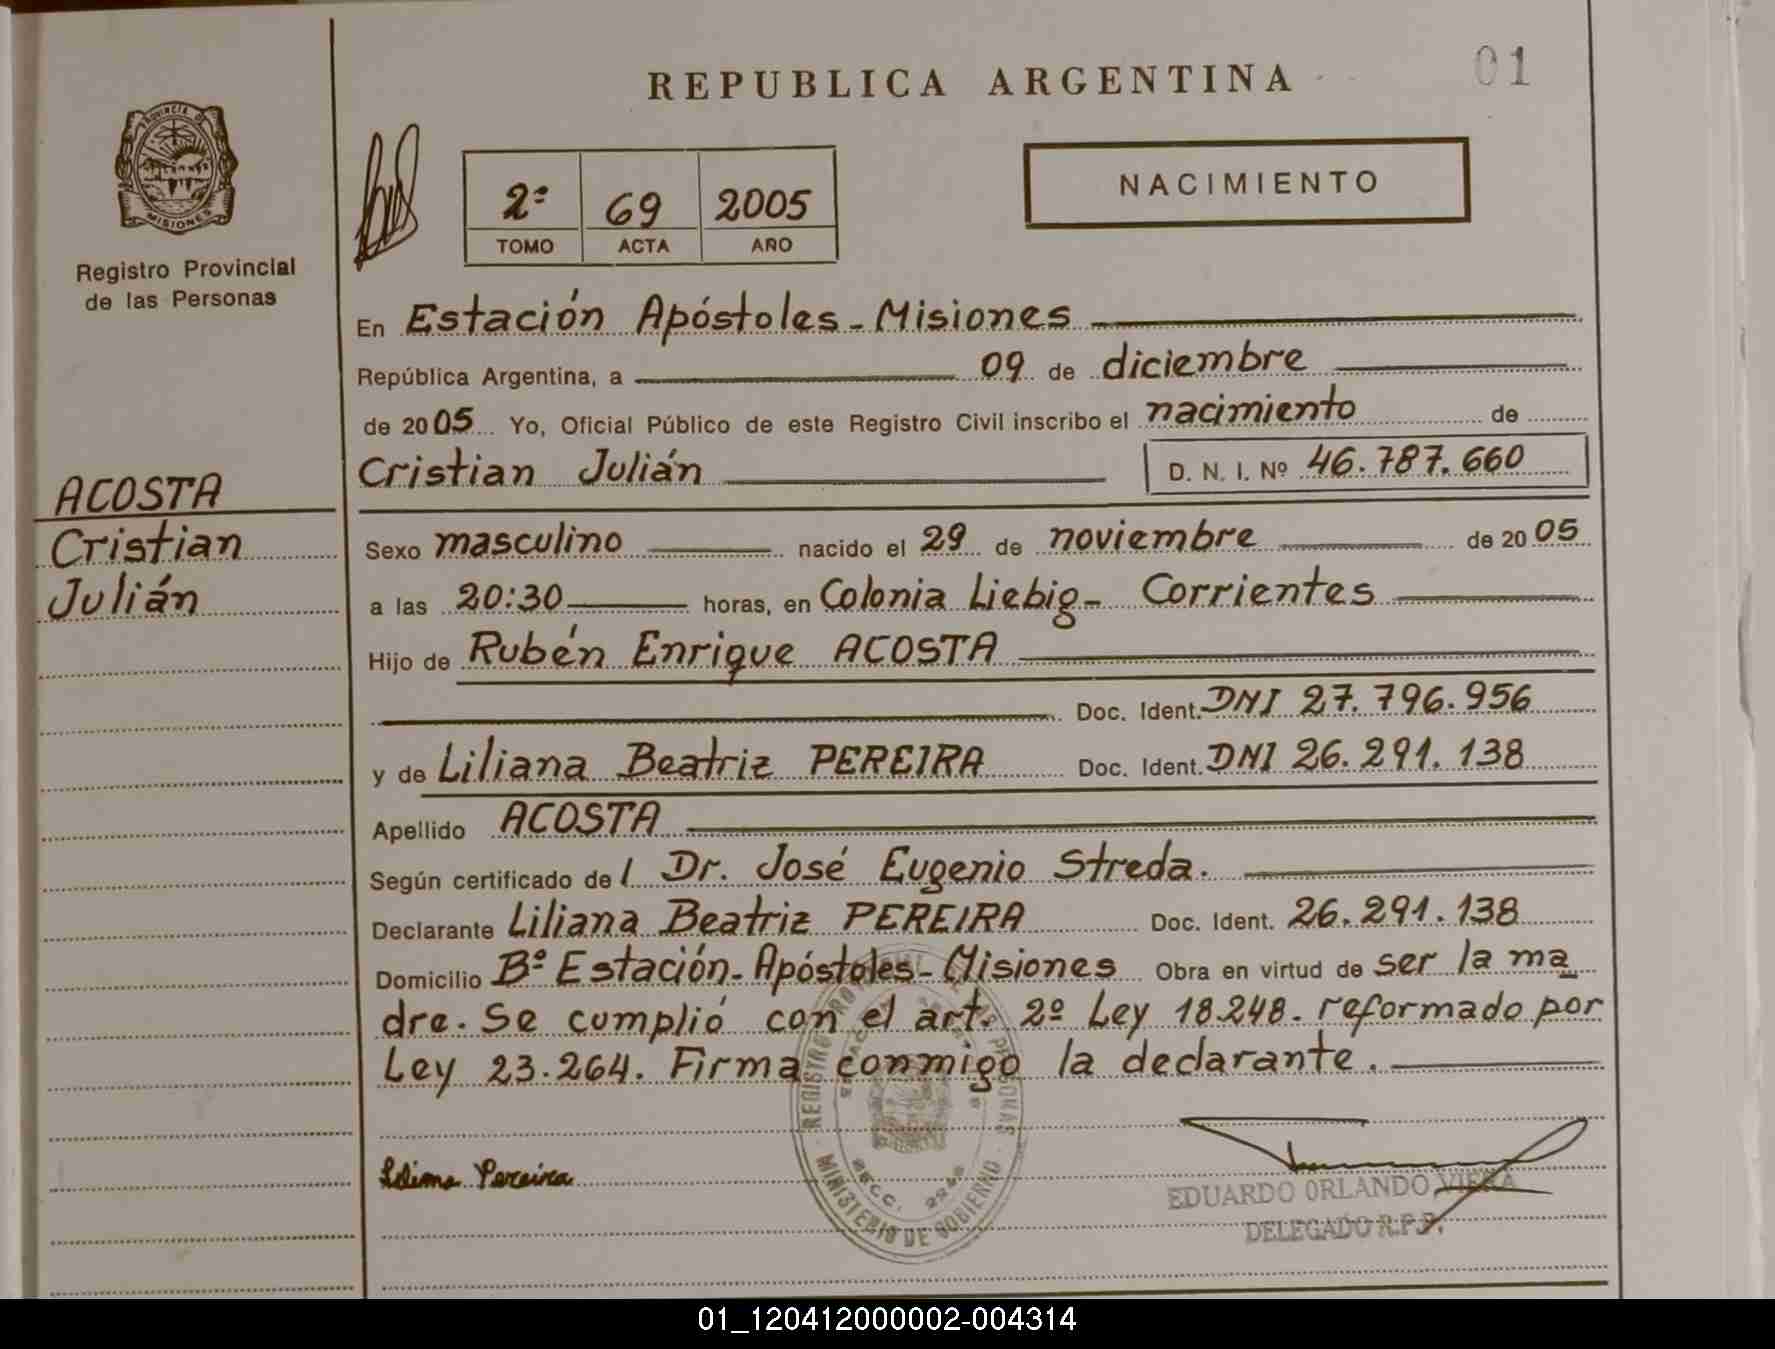 REPUBLICA ARGENTINA
01
PROVINCIA DE
MISIONES
Registro Provincial
de las Personas
2º 69 2005
TOMO ACTA AÑO
NACIMIENTO
En Estación Apóstoles - Misiones
República Argentina, a 09 de diciembre
de 2005 Yo, Oficial Público de este Registro Civil inscribo el nacimiento de
Cristian Julián D. N. I. Nº 46.787.660
ACOSTA
Cristian
Julián
Sexo masculino nacido el 29 de noviembre de 2005
a las 20:30 horas, en Colonia Liebig - Corrientes
Hijo de Rubén Enrique ACOSTA
Doc. Ident. DNI 27.796.956
y de Liliana Beatriz PEREIRA Doc. Ident. DNI 26.291.138
Apellido ACOSTA
Según certificado del Dr. José Eugenio Streda.
Declarante Liliana Beatriz PEREIRA Doc. Ident. 26.291.138
Domicilio Bº Estación - Apóstoles - Misiones Obra en virtud de ser la ma
dre. Se cumplió con el art. 2º Ley 18.248. reformado por
Ley 23.264. Firma conmigo la declarante.
Pereira
MINISTERIO DE GOBIERNO
SECC. 2248
EDUARDO ORLANDO VIERA
DELEGADO R.P.P.
01_120412000002-004314